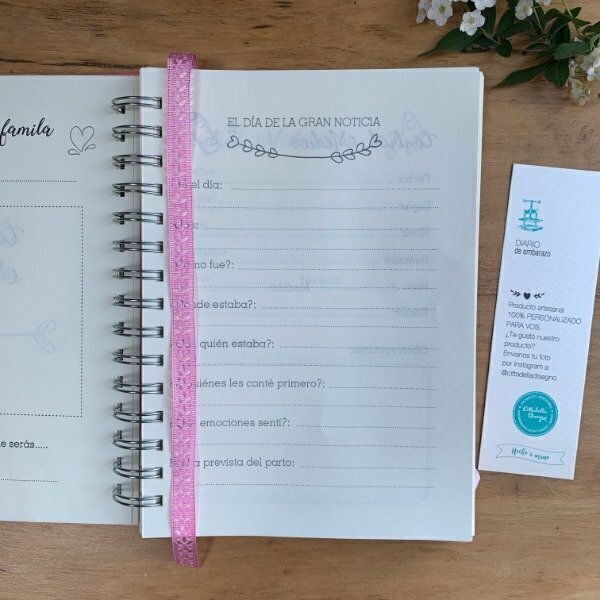 famila
e serás.....
EL DÍA DE LA GRAN NOTICIA
e el día:
no fue?:
nde estaba?:
quién estaba?:
iénes les conté primero?:
emociones sentí?:
a prevista del parto:
Fecha:
Semana
Observaciones
DIARIO
de embarazo
Producto artesanal
100% PERSONALIZADO
PARA VOS.
¿Te gustó nuestro
producto?
Envianos tu foto
por instagram a
@cittadelladisegno.
Cittadella
Disegno
Hecho a mano